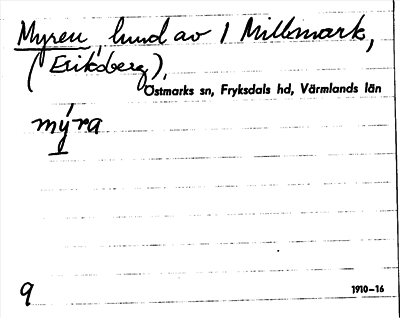 Myren, lund av 1 Millomark,
(Eriksberg),
Östmarks sn, Fryksdals hd, Värmlands län
mýra
9
1910-16